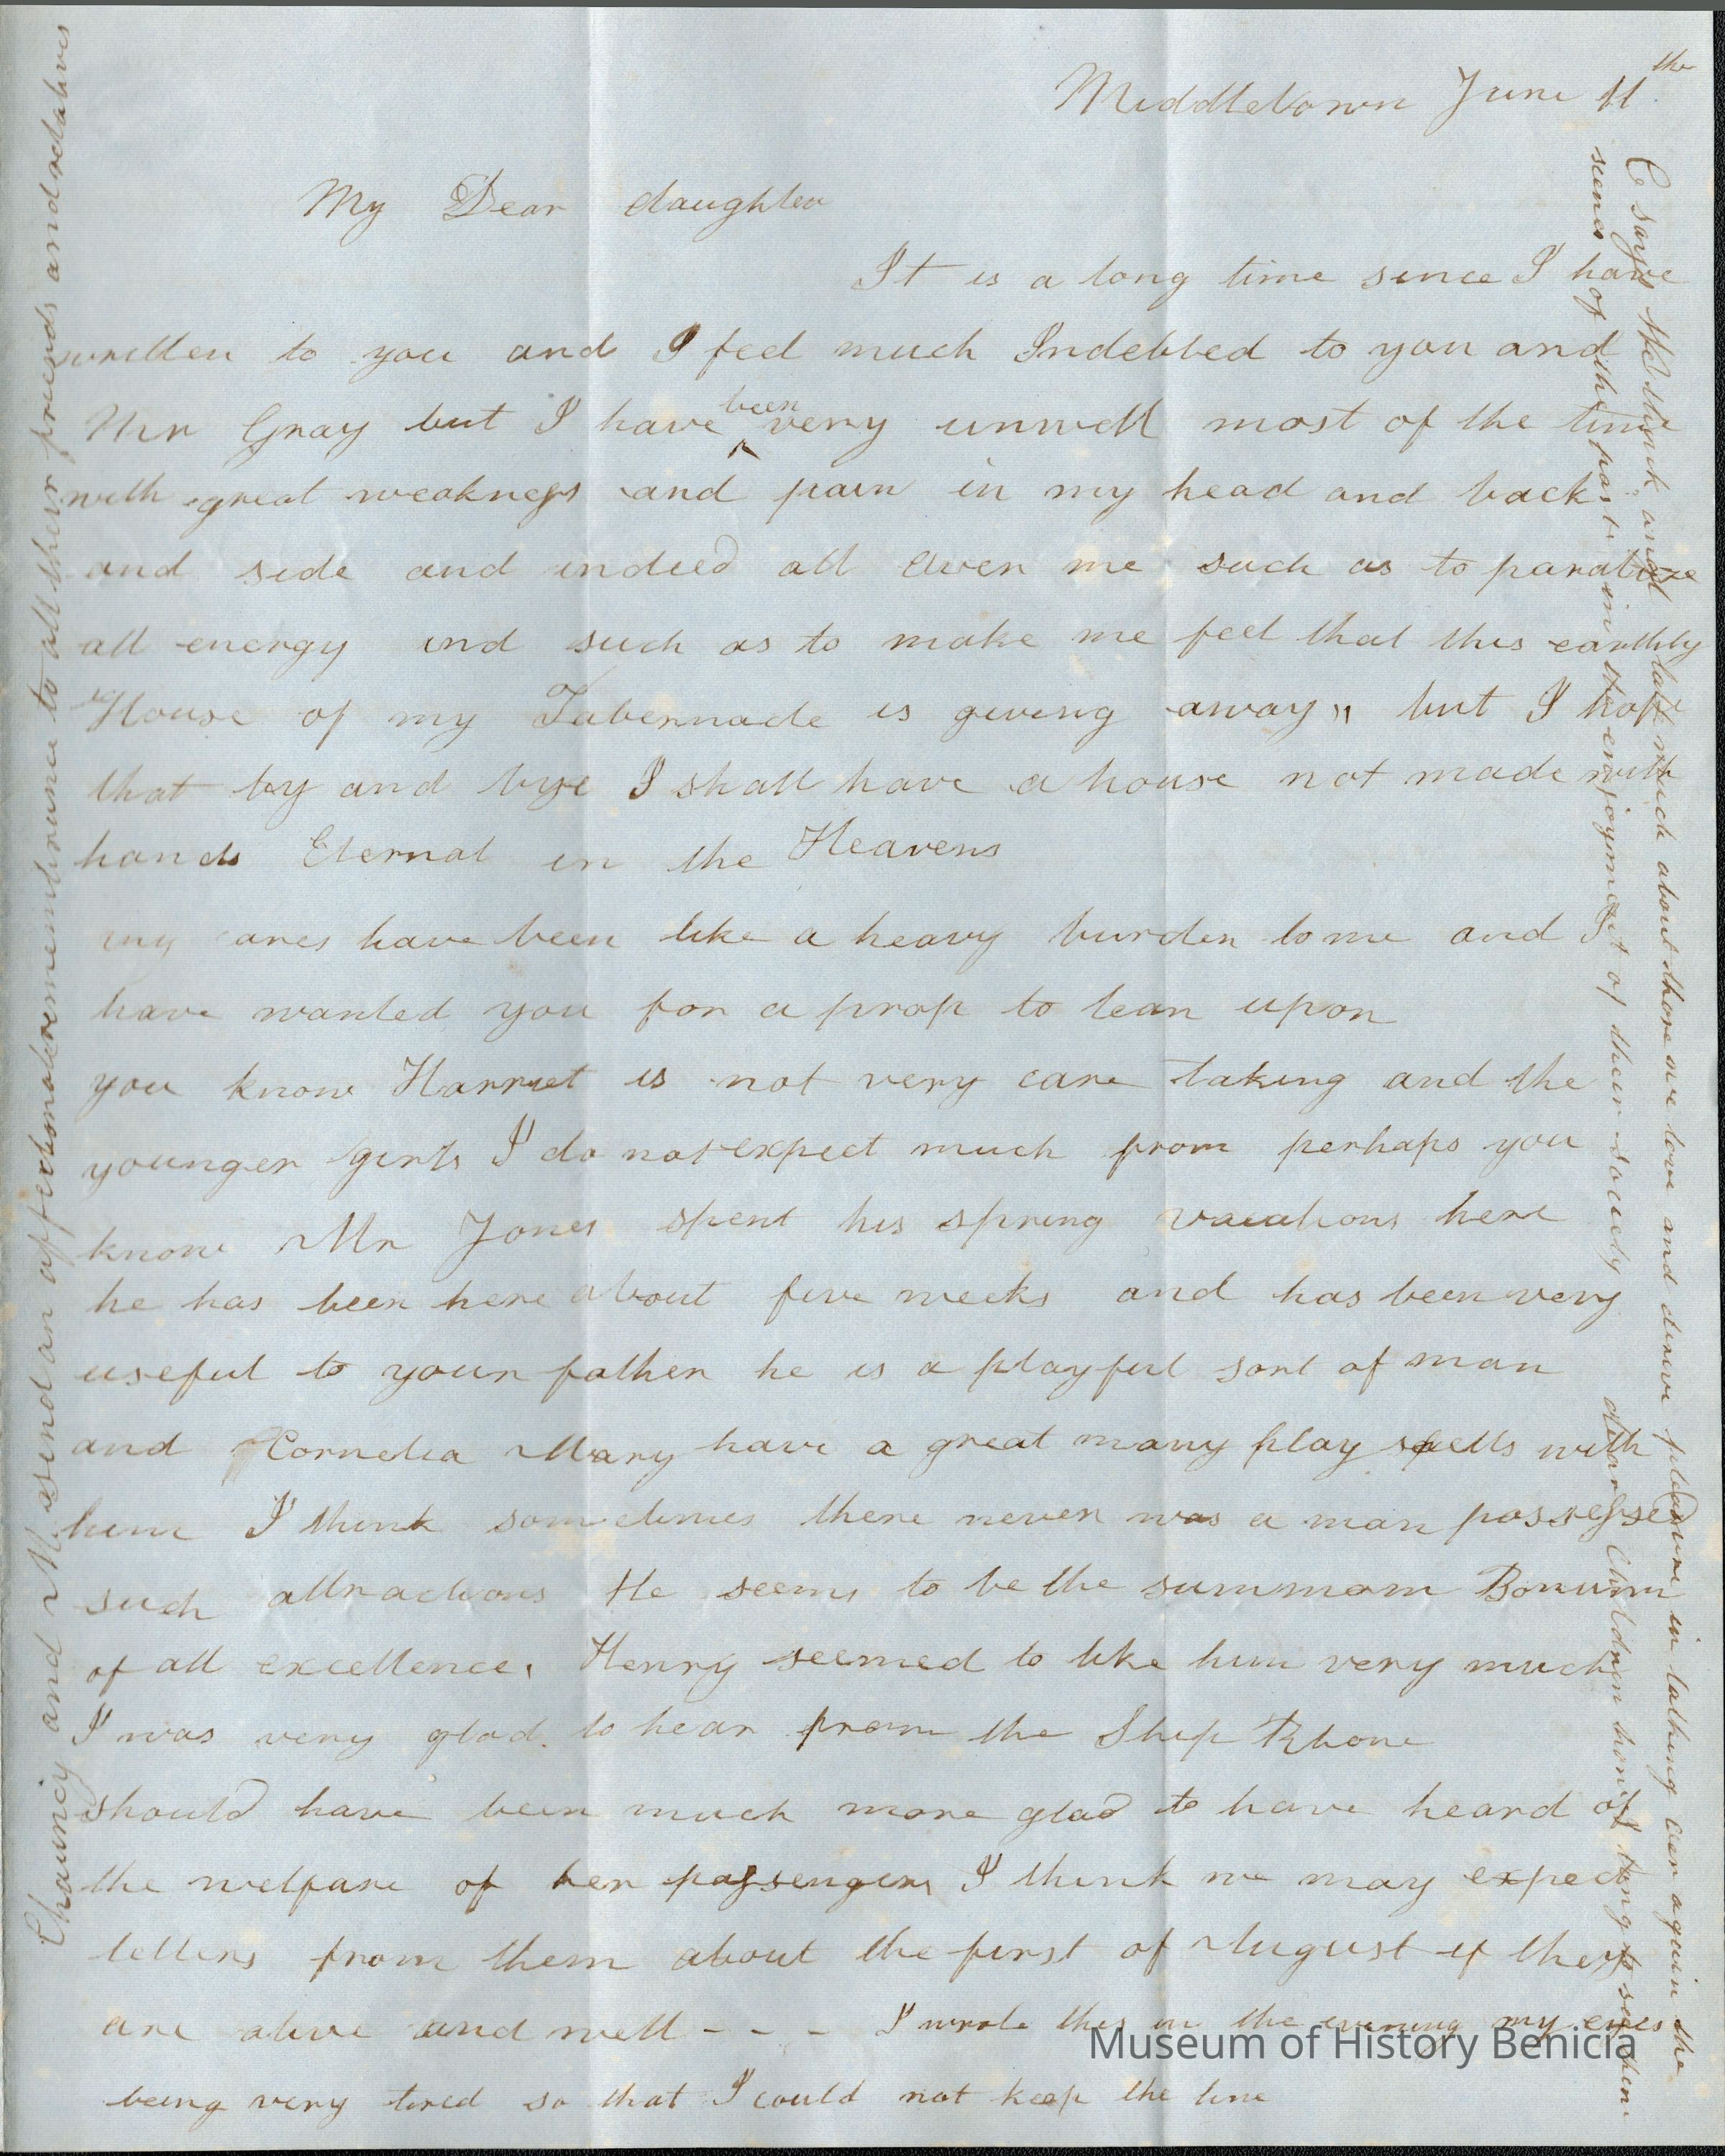 Middletown June 11th
My Dear daughter
It is a long time since I have
written to you and I feel much Indebted to you and
Mr Gray but I have been very unwell most of the time
with great weakness and pain in my head and back
and side and indeed all over me such as to paralize
all energy and such as to make me feel that this earthly
House of my Tabernacle is giving away" but I hope
that by and bye I shall have a house not made with
hands Eternal in the Heavens
my cares have been like a heavy burden to me and I
have wanted you for a prop to lean upon
you know Harriet is not very care taking and the
younger girls I do not expect much from perhaps you
know Mr Jones spent his spring vacations here
he has been here about five weeks and has been very
useful to your father he is a playful sort of man
and Cornelia Mary have a great many play spells with
him I think sometimes there never was a man possessed
such attractions He seems to be the summom Bonum
of all excellence, Henry seemed to like him very much
I was very glad to hear from the Ship Rhone
should have been much more glad to have heard of
the welfare of her passengers I think we may expect
letters from them about the first of August if they
are alive and well - - - I wrote this in the evening my eyes
being very tired so that I could not keep the line
C says She think and talk much about those we love and derive pleasure in talking over again the
scenes of the past in the enjoyment of their society dear Children how I long to see them
Chauncy and M send an affectionate remembrance to all their friends and relatives
Museum of History Benicia